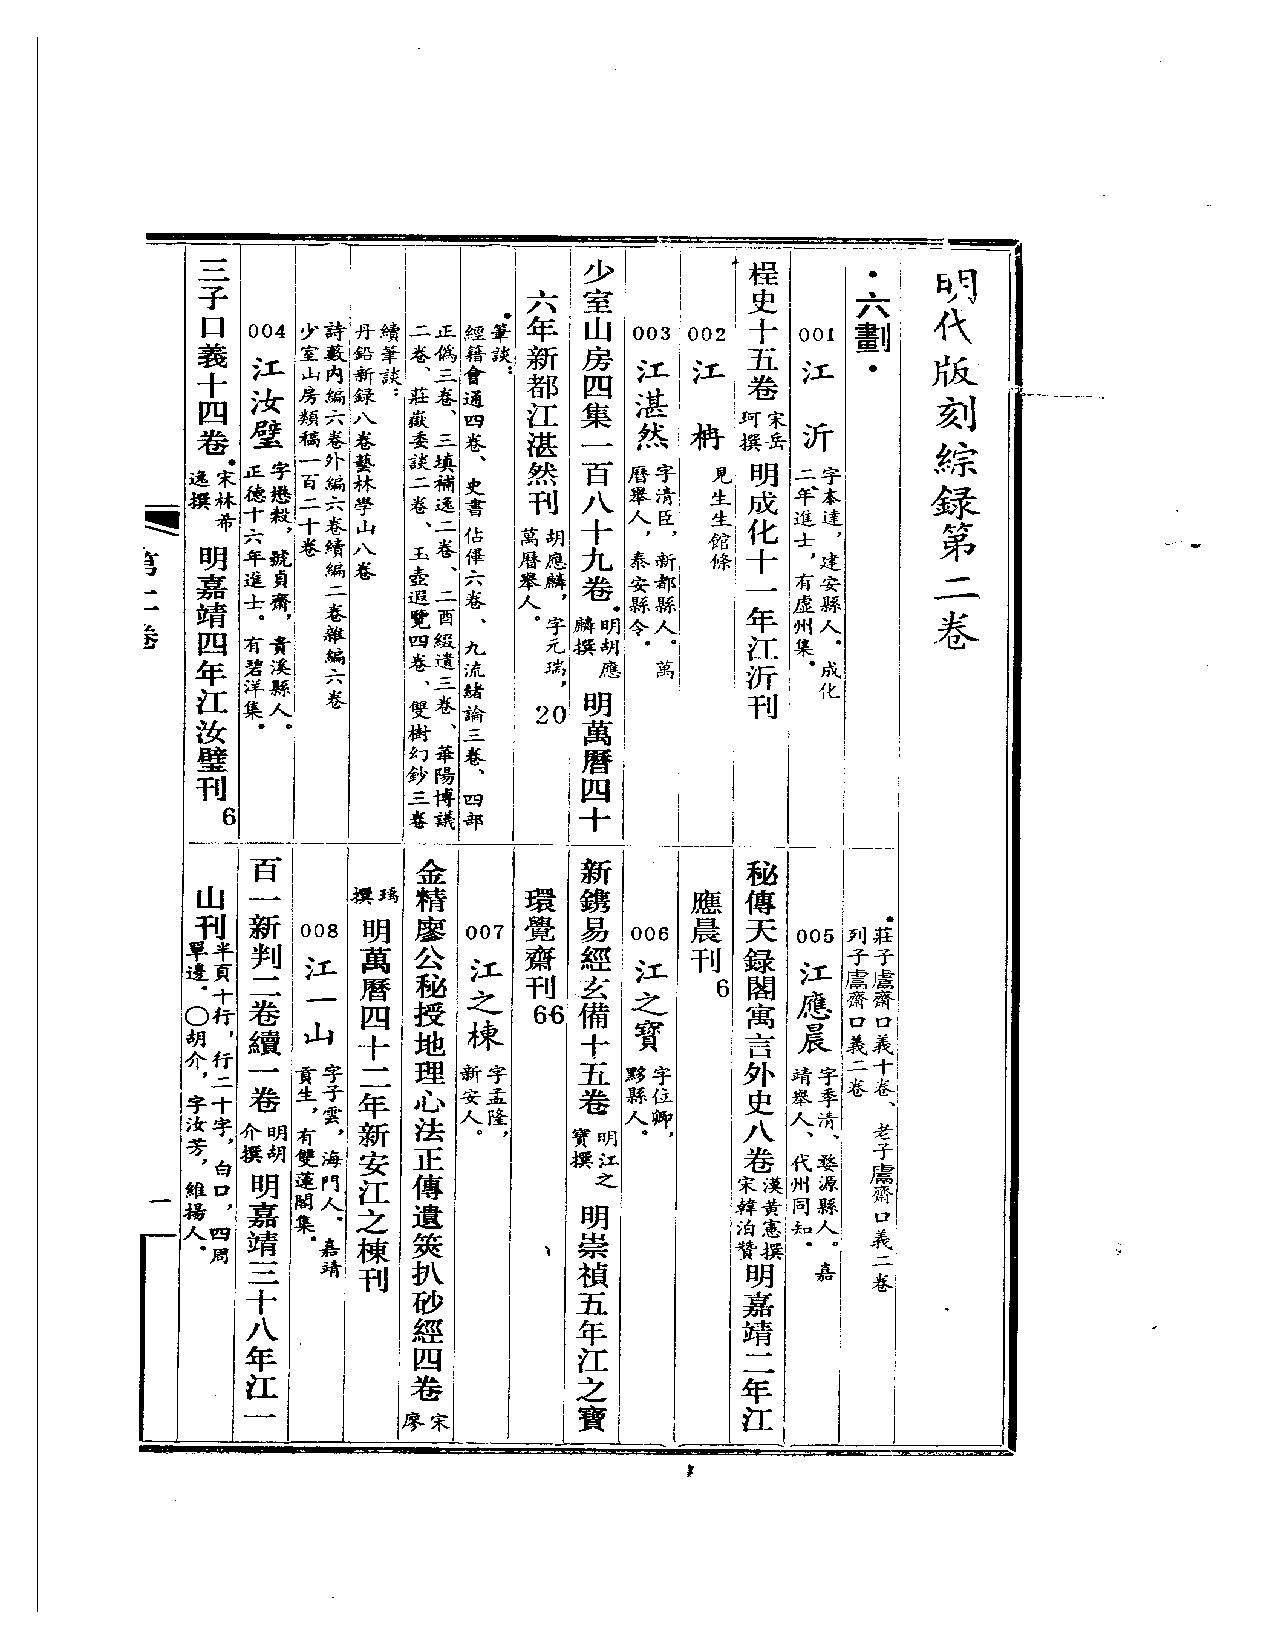 明代版刻綜録第二卷
·六劃·
001 江沂 字本達，建安縣人。成化
二年進士，有虚州集。
桯史十五卷 宋岳
珂撰 明成化十一年江沂刊
002 江
見生生館條
003 江湛然 字清臣，新都縣人。萬
曆舉人，泰安縣令。
少室山房四集一百八十九卷 明胡應
麟撰 明萬曆四十
六年新都江湛然刊 胡應麟，字元瑞，
萬曆舉人。 20
筆談：
經籍會通四卷、史書佔偉六卷、九流緒論三卷、四部
正僞三卷、三填補逸二卷、二酉綴遺三卷、華陽博議
二卷、莊嶽委談二卷、玉壺遐覽四卷、雙樹幻鈔三卷
續筆談：
丹鉛新録八卷藝林學山八卷
詩藪内編六卷外編六卷續編二卷雜編六卷
少室山房類稿一百二十卷
004 江汝璧 字懋穀，號貞齋，貴溪縣人。
正德十六年進士。有碧洋集。
三子口義十四卷 宋林希
逸撰 明嘉靖四年江汝璧刊 6
莊子鬳齋口義十卷、老子鬳齋口義二卷
列子鬳齋口義二卷
005 江應晨 字季清、婺源縣人。嘉
靖舉人、代州同知。
秘傳天録閣寓言外史八卷 漢黃憲撰
宋韓泊贊 明嘉靖二年江
應晨刊 6
006 江之寶 字位卿，
黟縣人。
新鐫易經玄備十五卷 明江之
寶撰 明崇禎五年江之寶
環覺齋刊 66
007 江之棟 字孟隆，
新安人。
金精廖公秘授地理心法正傳遺筴扒砂經四卷 宋
廖
瑀
撰 明萬曆四十二年新安江之棟刊
008 江一山 字子雲，海門人、嘉靖
貢生，有雙蓮閣集。
百一新判二卷續一卷 明胡
介撰 明嘉靖三十八年江一
山刊 半頁十行，行二十字，白口，四周
單邊。〇胡介，字汝芳，維揚人。
第二卷
一